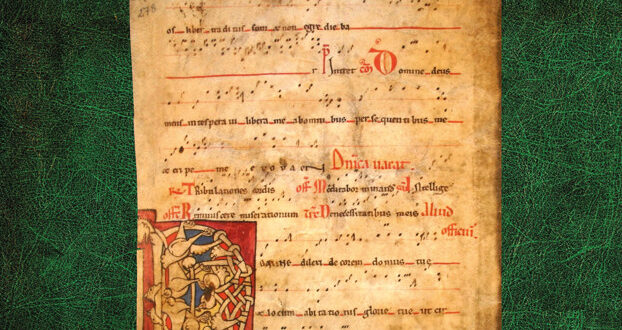 os liber tra di tus sum et non egre die ba
r Intret Domine deus
meus in te spera ui libera me ab omni bus per se quen ti bus me
et eri pe me e v o v a e Dnica uacat
Tribulationes cordis off Meditabor in mandatis Intellige
off Reminiscere miserationum De necessitatibus meis Aliud
officiu.
dilexi de corem do mus tue
et lo cum abi ta ti o nis glorie tue ut